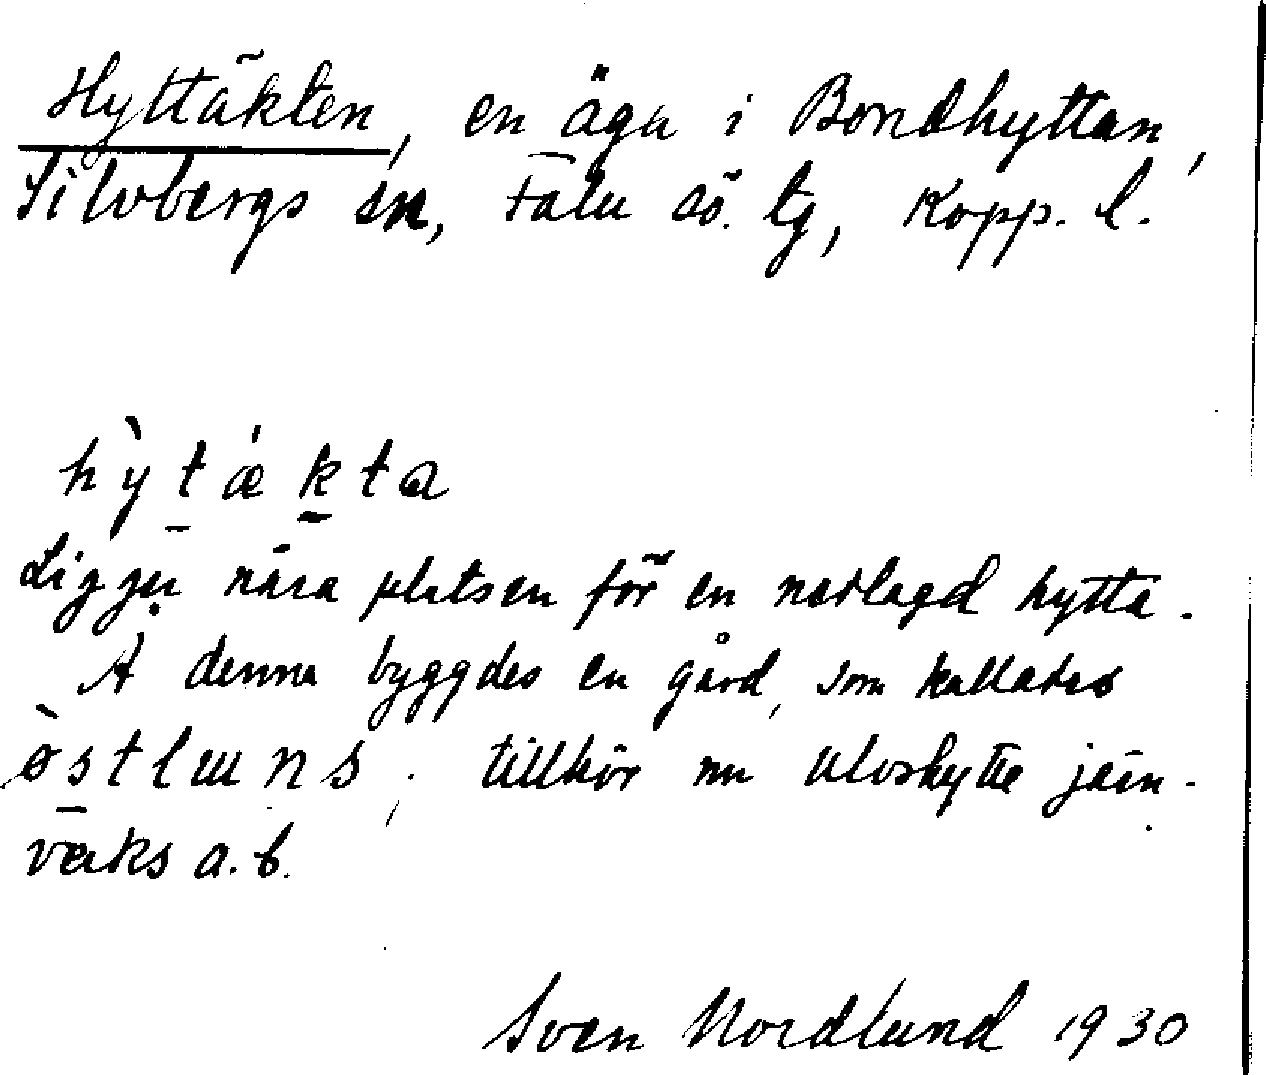 Hyttäkten, en äga i Bondhyttan,
Silvbergs sn, Falu sö. tg, Kopp. l.
hỳtǽkta
Ligger nära platsen för en nedlagd hytta.
Å denna byggdes en gård, som kallades
östluns; tillhör nu Ulvshytte järn-
verks a.b.
Sven Nordlund 1930